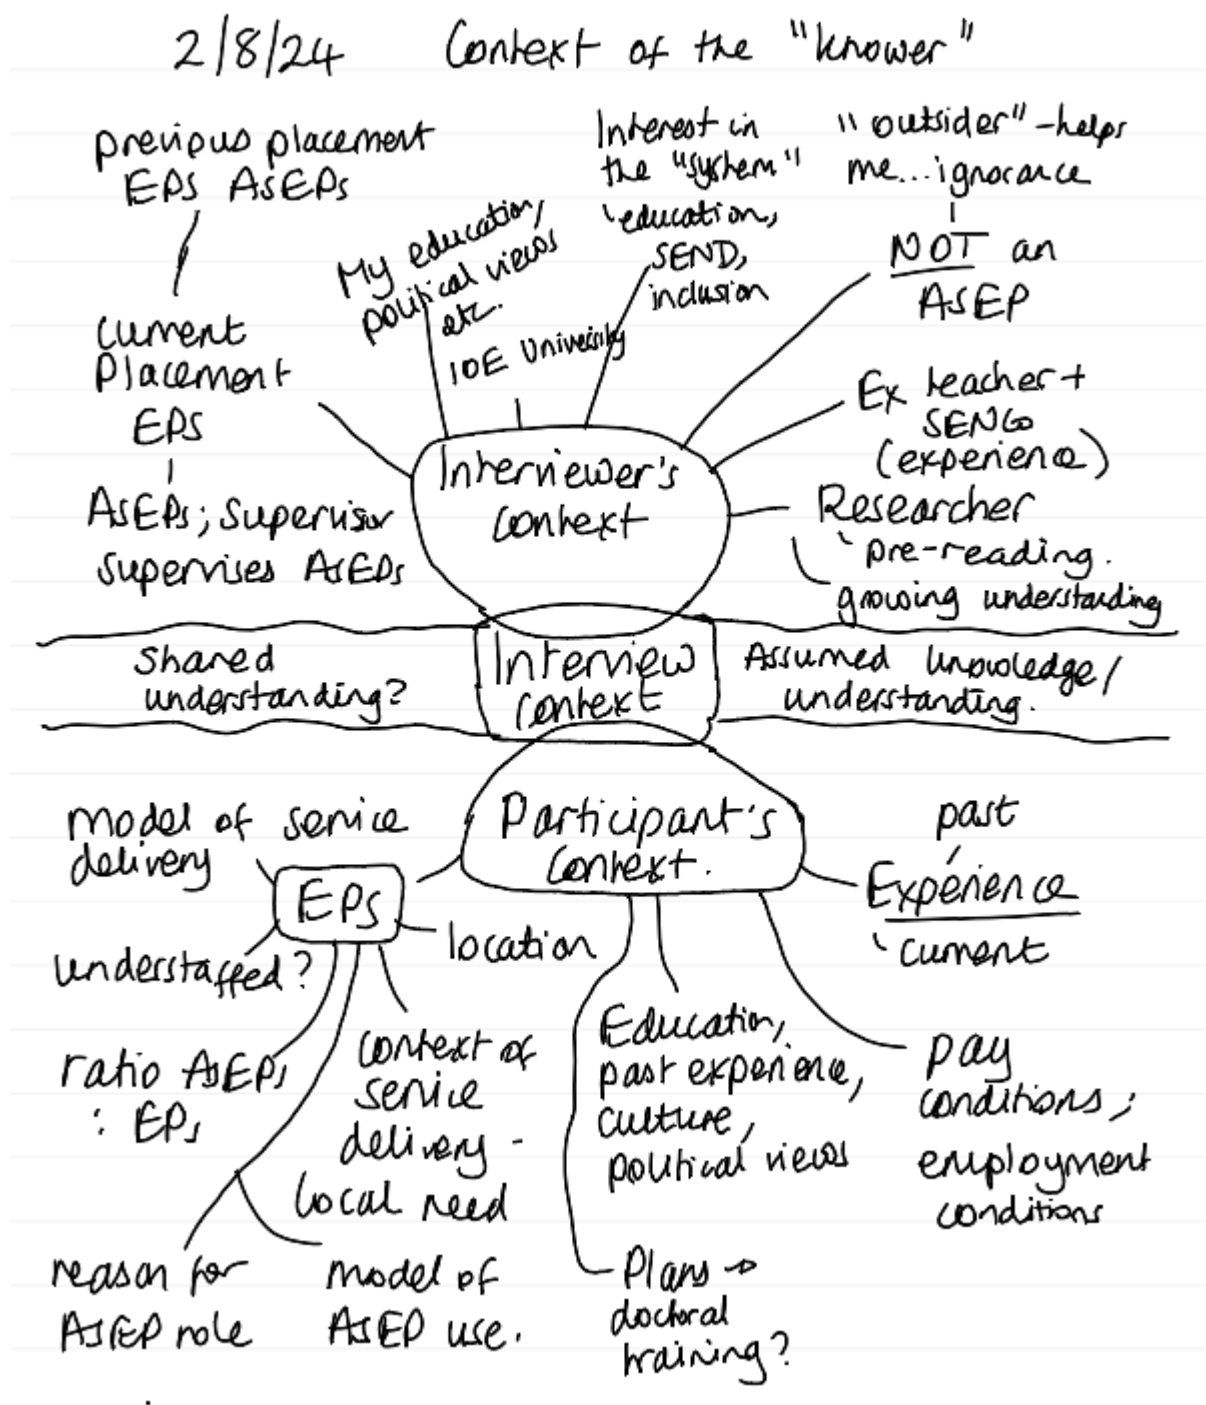 2/8/24 Context of the "knower"
previous placement
EPS AsEPs
Current
Placement
EPS
AsEPs; Supervisor
supervises AsEPs
My education,
political views
etc.
IOE University
Interest in
the "system"
education,
SEND,
inclusion
"outsider" - helps
me... ignorance
NOT an
AsEP
Ex teacher +
SENCo
(experience)
Researcher
pre-reading.
growing understanding
Interviewer's
context
Shared
understanding?
Interview
context
Assumed knowledge/
understanding.
Participant's
Context.
model of service
delivery
EPS
understaffed?
location
ratio AsEPs
: EPs
context of
service
delivery -
local need
reason for
AsEP role
model of
AsEP use.
past
Experience
current
Education,
past experience,
culture,
political views
pay
conditions;
employment
conditions
Plans →
doctoral
training?